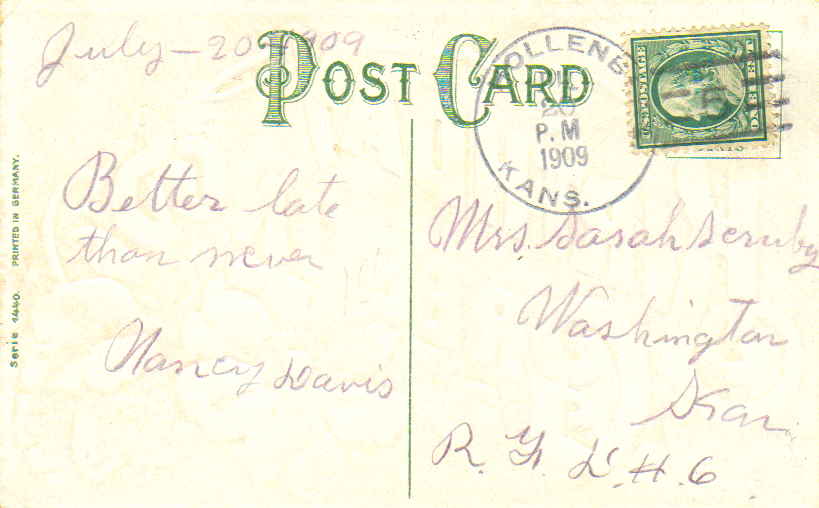 July - 20 - 1909
POST CARD
HOLLENB
20
P.M
1909
KANS.
U.S. POSTAGE
ONE CENT
Better late
than never
Nancy Davis
Mrs. Sarah Scruby
Washington
Kan.
R. F. D. # 6
Serie 1440. PRINTED IN GERMANY.